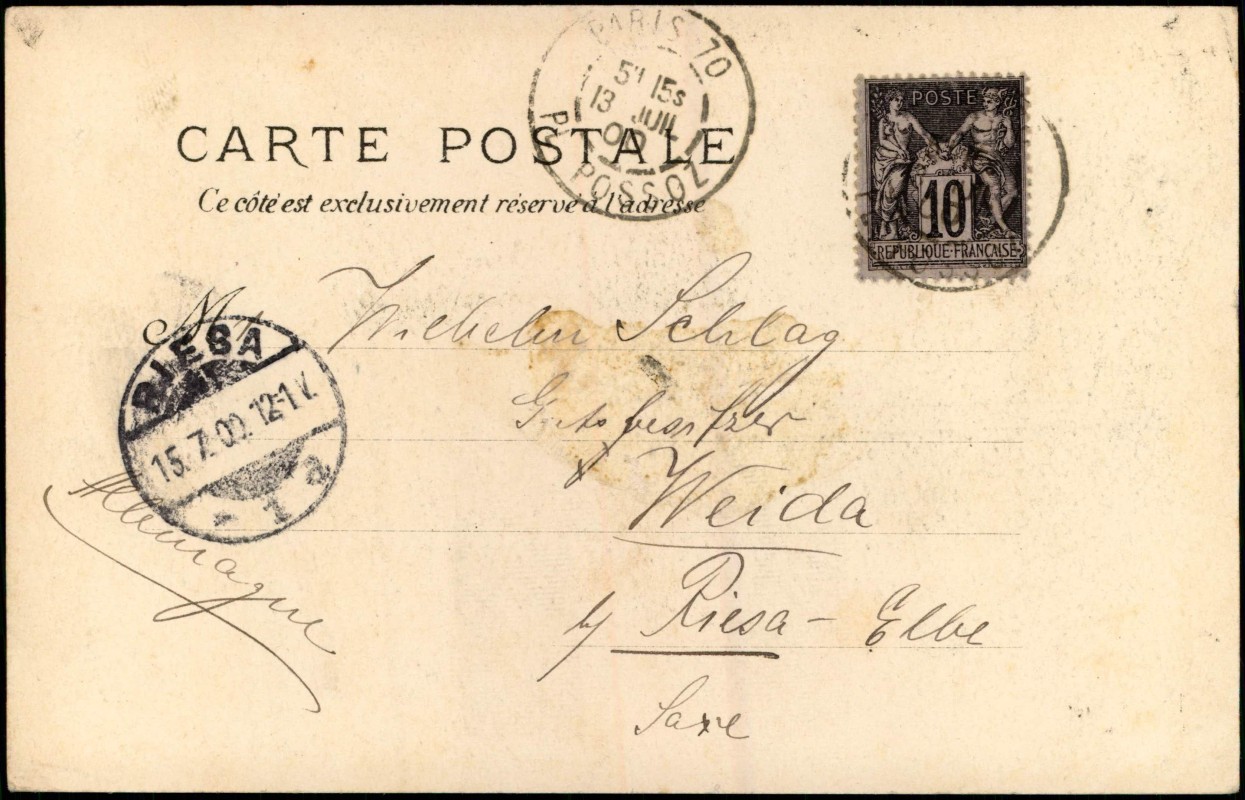 PARIS 70
5E 15S
13 JUIL
00
PL. POSSOZ
POSTE
10
REPUBLIQUE FRANCAISE
CARTE POSTALE
Ce côté est exclusivement réservé à l'adresse
M Wilhelm Schlag
Gutsbesitzer
Weida
by Riesa - Elbe
Saxe
Allemagne
RIESA
15.7.00.12-1 V.
* 1 a